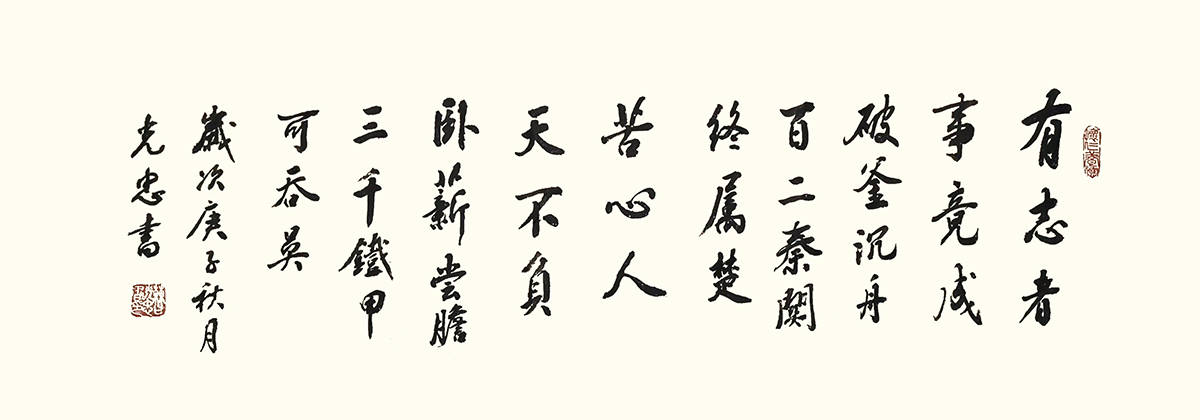 有志者
事竟成
破釜沉舟
百二秦關
终属楚
苦心人
天不負
卧薪尝膽
三千鐵甲
可吞吴
歲次庚子秋月
光忠書